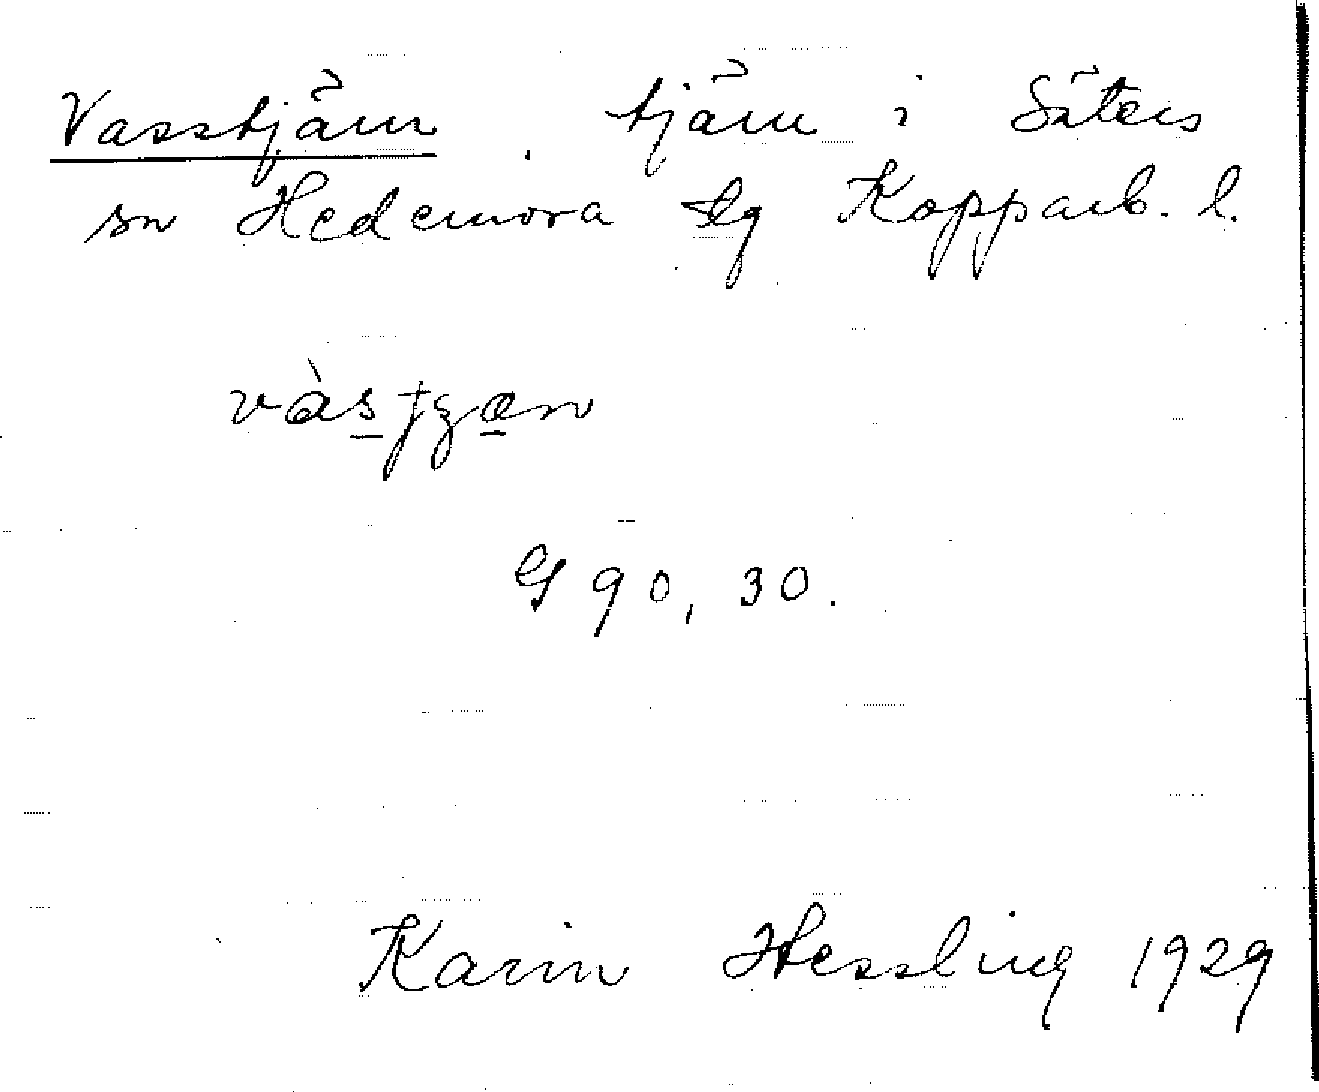 Vasstjärn, tjärn i Säters
sn Hedemora tlg Kopparb. l.
G 90, 30.
Karin Hessling 1929